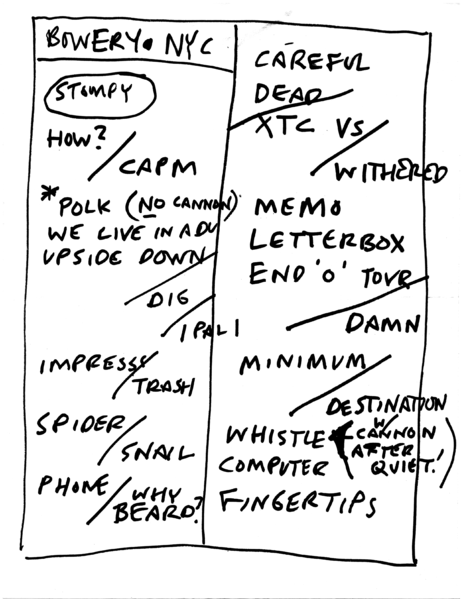 BOWERY • NYC
STOMPY
HOW?
CAPM
*POLK (NO CANNON)
WE LIVE IN A DU
UPSIDE DOWN
DIG
IPALI
IMPRESS
TRASH
SPIDER
SNAIL
PHONE
WHY
BEARD?
CAREFUL
DEAD
XTC VS
WITHERED
MEMO
LETTERBOX
END 'O' TOUR
DAMN
MINIMUM
DESTINATION
WHISTLE (W/
CANNON
AFTER
QUIET!)
COMPUTER
FINGERTIPS